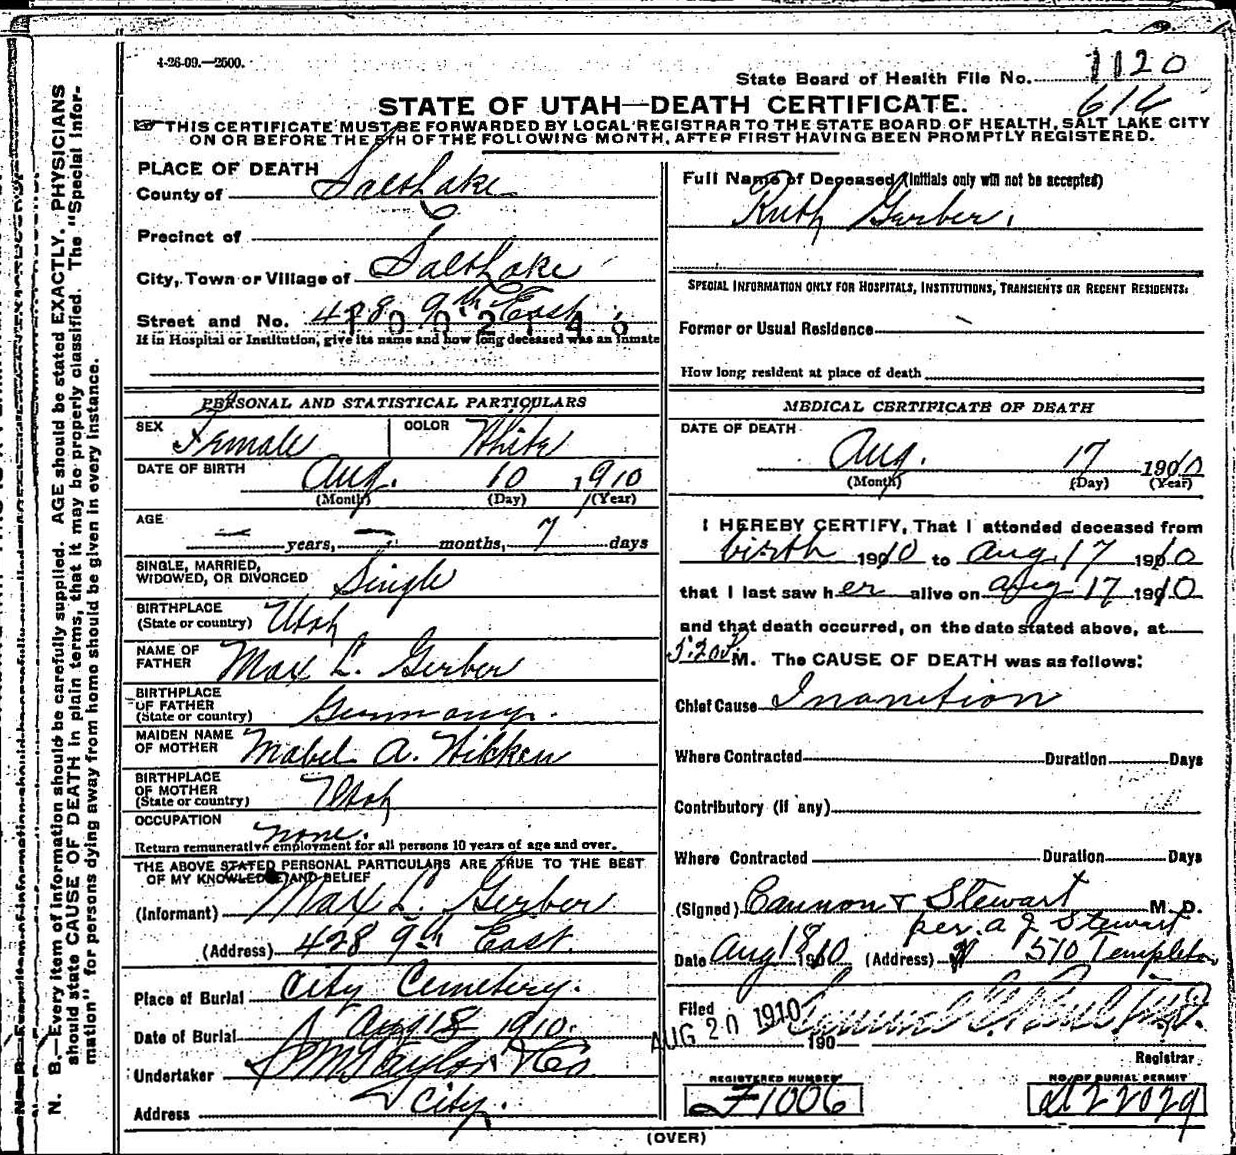 4-26-09.—2500.
State Board of Health File No. 1120
616
STATE OF UTAH—DEATH CERTIFICATE.
THIS CERTIFICATE MUST BE FORWARDED BY LOCAL REGISTRAR TO THE STATE BOARD OF HEALTH, SALT LAKE CITY
ON OR BEFORE THE 5TH OF THE FOLLOWING MONTH, AFTER FIRST HAVING BEEN PROMPTLY REGISTERED.
PLACE OF DEATH
County of Salt Lake
Precinct of
City, Town or Village of Salt Lake
Street and No. 428 9th East
1002146
If in Hospital or Institution, give its name and how long deceased was an inmate
PERSONAL AND STATISTICAL PARTICULARS
SEX Female COLOR White
DATE OF BIRTH Aug. 10 1910
(Month) (Day) (Year)
AGE — years, — months, 7 days
SINGLE, MARRIED,
WIDOWED, OR DIVORCED Single
BIRTHPLACE
(State or country) Utah
NAME OF
FATHER Max L. Gerber
BIRTHPLACE
OF FATHER
(State or country) Germany.
MAIDEN NAME
OF MOTHER Mabel A. Wikken
BIRTHPLACE
OF MOTHER
(State or country) Utah
OCCUPATION none.
Return remunerative employment for all persons 10 years of age and over.
THE ABOVE STATED PERSONAL PARTICULARS ARE TRUE TO THE BEST
OF MY KNOWLEDGE AND BELIEF
(Informant) Max L. Gerber
(Address) 428 9th East
Place of Burial City Cemetery.
Date of Burial Aug 18 1910.
Undertaker S M Taylor & Co
Address City.
Full Name of Deceased (Initials only will not be accepted)
Ruth Gerber.
SPECIAL INFORMATION ONLY FOR HOSPITALS, INSTITUTIONS, TRANSIENTS OR RECENT RESIDENTS.
Former or Usual Residence
How long resident at place of death
MEDICAL CERTIFICATE OF DEATH
DATE OF DEATH
Aug. 17 1910
(Month) (Day) (Year)
I HEREBY CERTIFY, That I attended deceased from
birth 1910 to Aug 17 1910
that I last saw her alive on Aug 17 1910
and that death occurred, on the date stated above, at
5:20 P M. The CAUSE OF DEATH was as follows:
Chief Cause Inanition
Where Contracted Duration Days
Contributory (if any)
Where Contracted Duration Days
(Signed) Cannon & Stewart M. D.
per. A J Stewart
Date Aug 18 1910 (Address) 510 Templeton
Filed AUG 20 1910 190
Registrar
REGISTERED NUMBER
F1006
NO. OF BURIAL PERMIT
D22029
(OVER)
N. B.—Every item of information should be carefully supplied. AGE should be stated EXACTLY. PHYSICIANS
should state CAUSE OF DEATH in plain terms, that it may be properly classified. The "Special Infor-
mation" for persons dying away from home should be given in every instance.